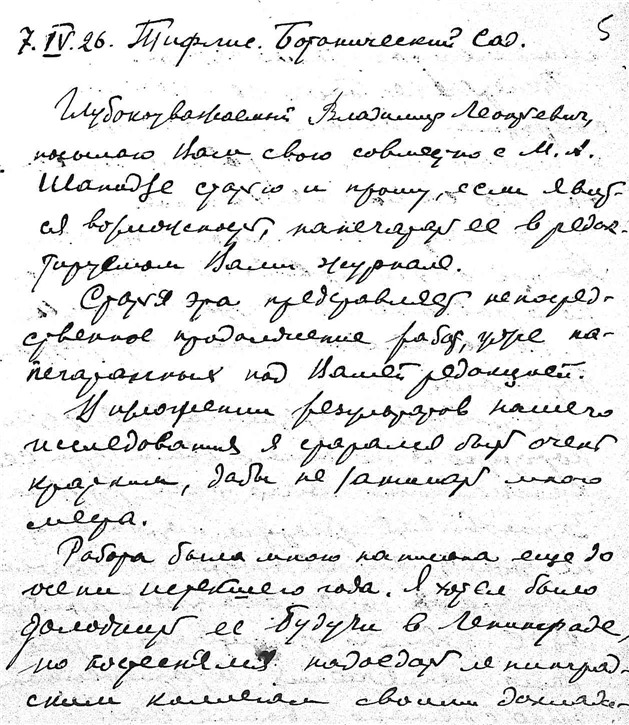 5
7.IV.26. Тифлис. Ботанический Сад.
Глубокоуважаемый Владимир Леонтьевич,
посылаю Вам свою совместно с М. А.
Шанидзе статью и прошу, если явит-
ся возможность, напечатать ее в редак-
тируемом Вами журнале.
Статья эта представляет непосред-
ственное продолжение работ, уже на-
печатанных под Вашей редакцией.
В изложении результатов нашего
исследования я старался быть очень
кратким, дабы не занимать много
места.
Работа была мною написана еще до
осени истекшего года. Я хотел было
доложить ее будучи в Ленинграде,
но постеснялся надоедать ленинград-
ским коллегам своими доклада-